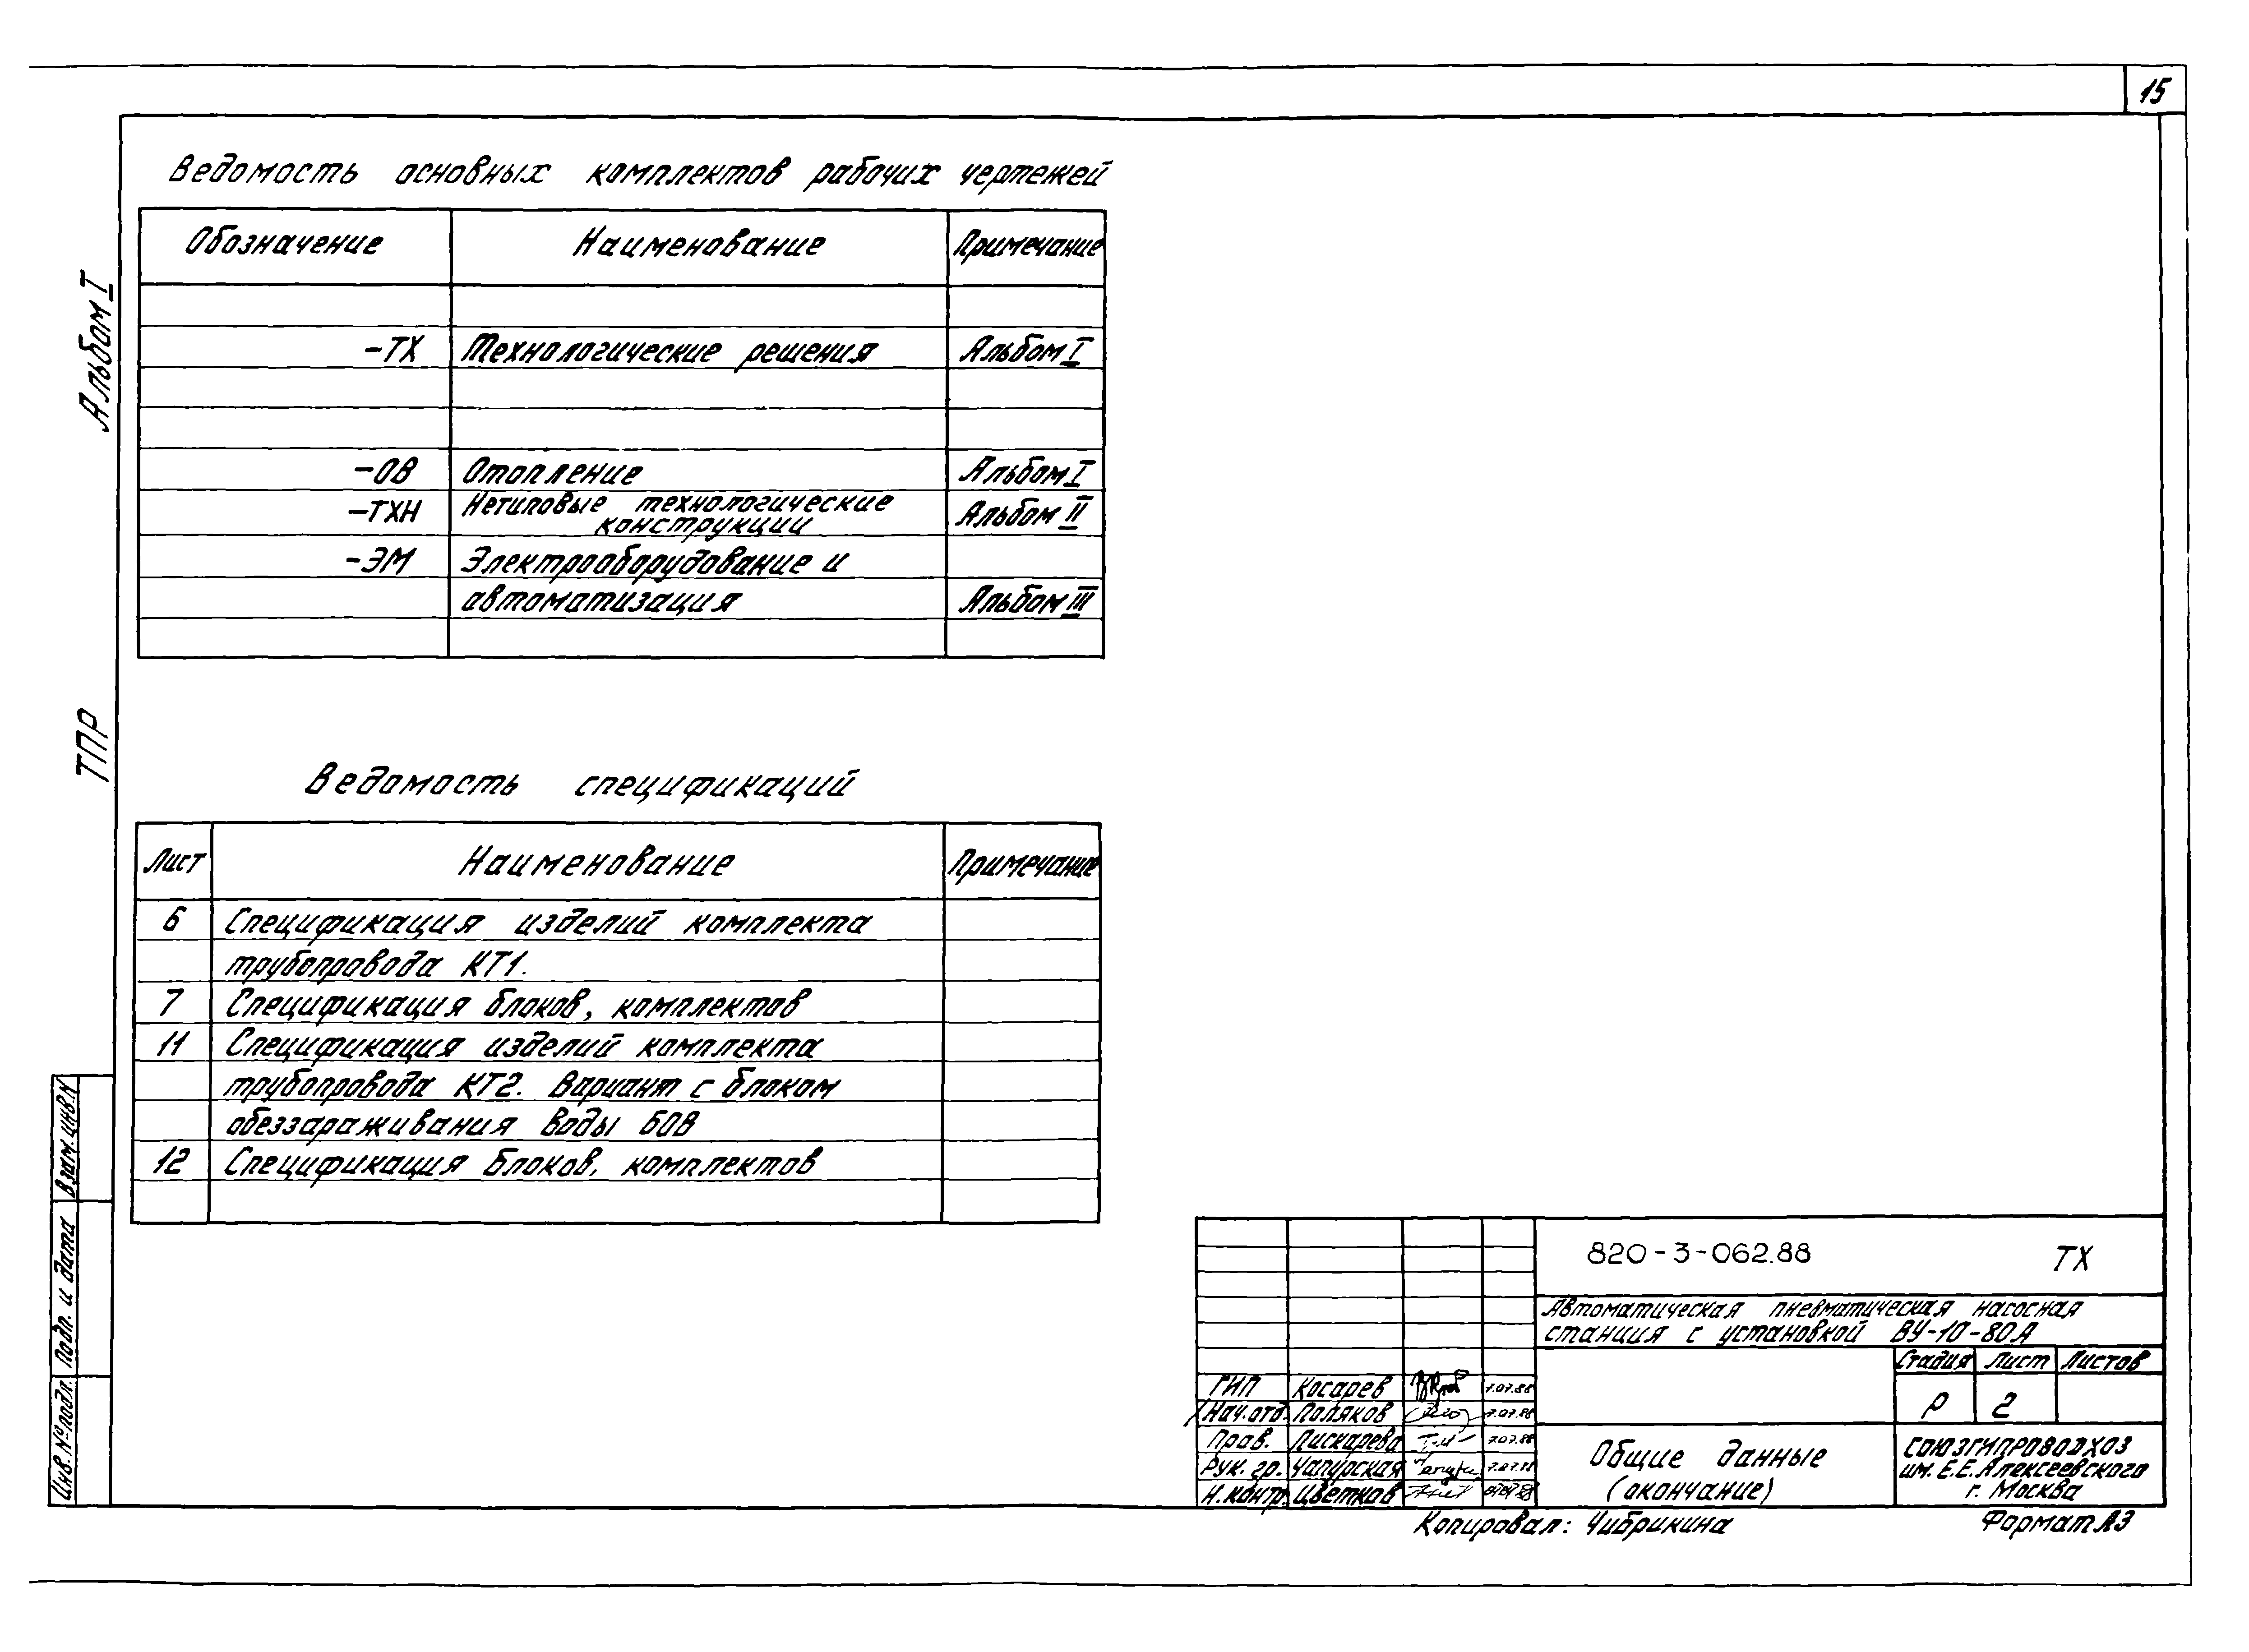 15
Ведомость основных комплектов рабочих чертежей
Обозначение Наименование Примечание
-ТХ Технологические решения Альбом I
-ОВ Отопление Альбом I
-ТХН Нетиповые технологические
конструкции Альбом II
-ЭМ Электрооборудование и
автоматизация Альбом III
Альбом I
ТПР
Ведомость спецификаций
Лист Наименование Примечание
6 Спецификация изделий комплекта
трубопровода КТ1.
7 Спецификация блоков, комплектов
11 Спецификация изделий комплекта
трубопровода КТ2. Вариант с блоком
обеззараживания воды БОВ
12 Спецификация блоков, комплектов
Взам. инв. N
Подп. и дата
Инв. № подл.
820-3-062.88 ТХ
Автоматическая пневматическая насосная
станция с установкой ВУ-10-80А
Стадия Лист Листов
Р 2
ГИП Косарев 7.07.88
Нач. отд. Поляков 7.07.88
Пров. Пискарева 7.07.88
Рук. гр. Чапурская 7.07.88
Н. контр. Цветков
Общие данные
(окончание)
СОЮЗГИПРОВОДХОЗ
им. Е.Е. Алексеевского
г. Москва
Копировал: Чибрикина Формат А3